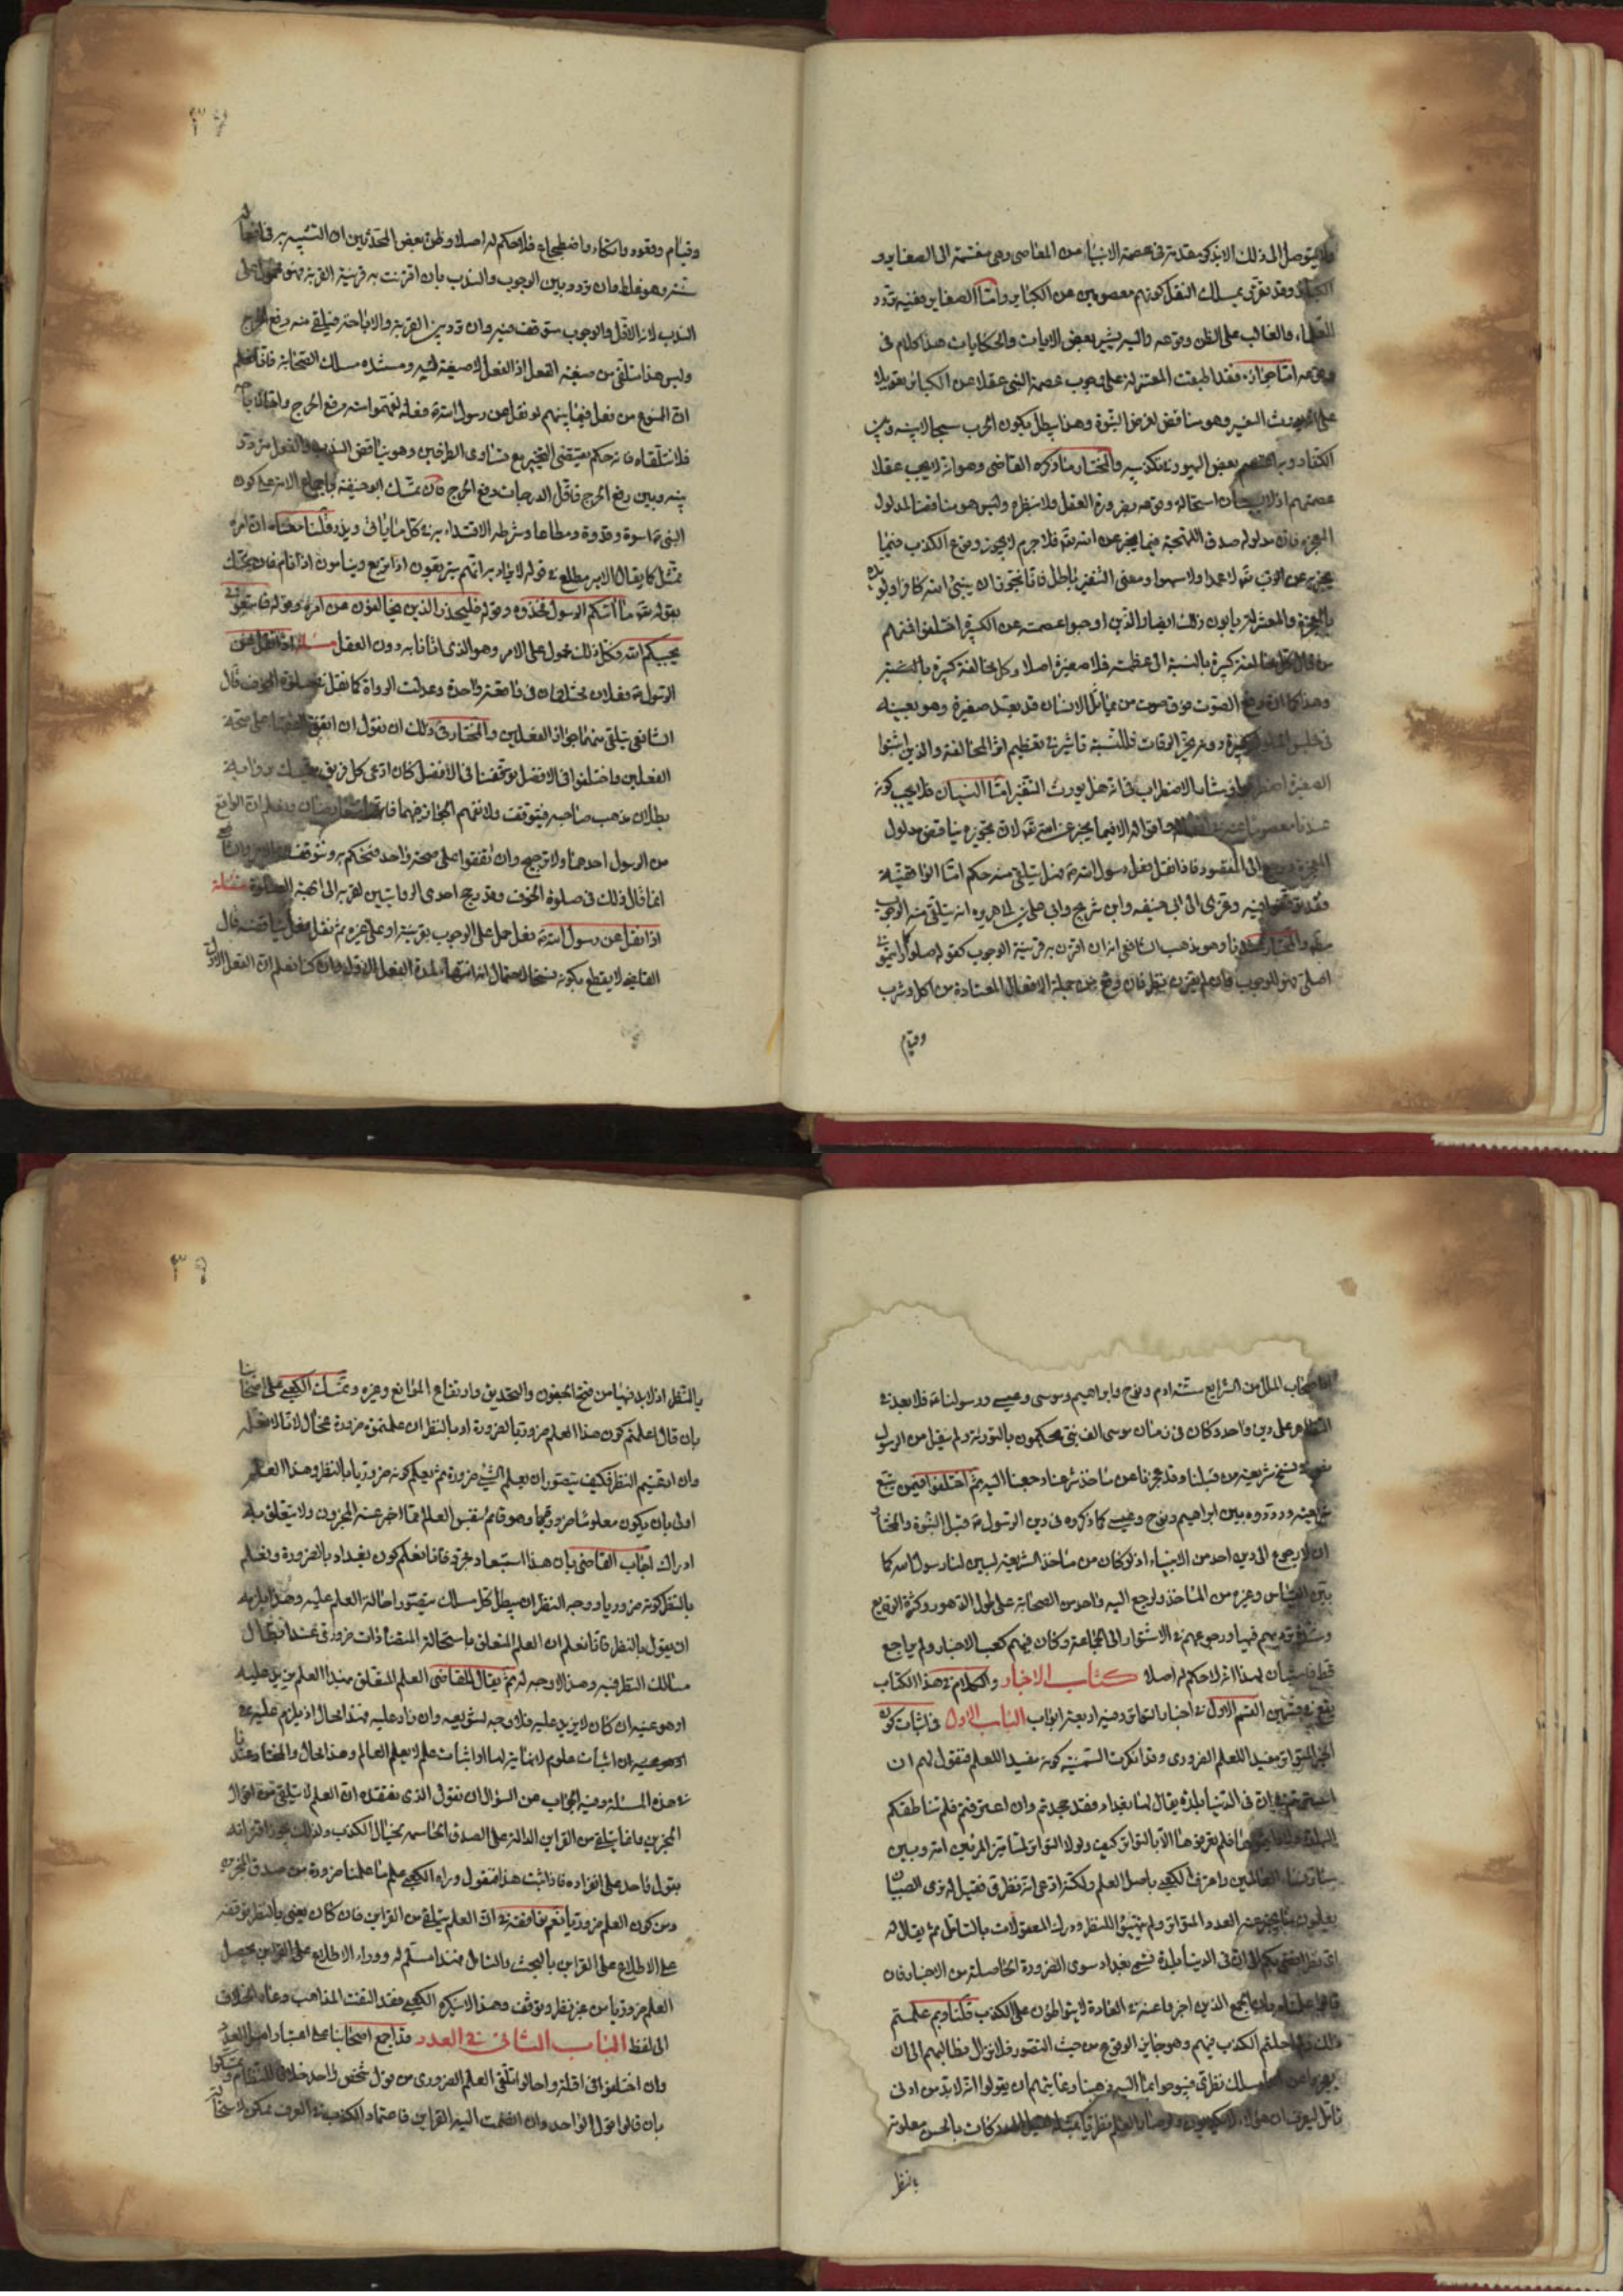 ولا يتوصل الى ذلك الا بذكر مقدمة في عصمة الانبياء من المعاصي وهي منقسمة الى الصغاير و
الكباير وقد تقرر بمسلك النقل كونهم معصومين عن الكباير واما الصغاير ففيه تردد
العلماء والغالب على الظن وقوعه واليه يشير بعض الايات والحكايات هذا كلام في
وقوعه اما جوازه فقد اطبقت المعتزلة على وجوب عصمة النبي عقلا عن الكباير تعويلا
على انه يورث التنفير وهو مناقض لغرض النبوة وهذا يبطل بكون الحرب سجالا بينه وبين
الكفار وبه اعتصم بعض اليهود في تكذيبه والمختار ما ذكره القاضي وهو انه لا يجب عقلا
عصمتهم اذ لا يستبان استحالة وقوعه بضرورة العقل ولا بنظره وليس هو مناقضا لمدلول
المعجزة فان مدلوله صدق اللهجة فيما يخبر عن الله تعالى فلا جرم لا يجوز وقوع الكذب فيما
يخبر به عن الرب تعالى لا عمدا ولا سهوا ومعنى التنفير باطل فانا نجوز ان ينبئ الله كافرا ويؤيده
بالمعجزة والمعتزلة يابون ذلك ايضا والذين اوجبوا عصمته عن الكبيرة اختلفوا فمنهم
من قال كل مخالفة كبيرة بالنسبة الى عظمته فلا صغيرة اصلا وكل مخالفة كبيرة بالنسبة
وهذا كما ان رفع الصوت فوق صوت من يماثل الانسان قد يعد صغيرة وهو بعينه
في مجلس الملوك كبيرة دونه تحز الرقاب فللنسبة تاثير في تعظيم اثر المخالفة والذين اثبتوا
الصغيرة اضطربوا في شانه الاضطراب في انه هل يورث التنفير اما النسيان فلا يجب كونه
عندنا معصوما عنه في افعاله واقواله الا فيما يخبر عن الله تعالى لان تجويزه يناقض مدلول
المعجزة رجعنا الى المقصود فاذا نقل فعل رسول الله فهل يتلقى منه حكم اما الواقفية
فقد توقفوا فيه وعزي الى ابي حنيفة وابن سريج وابي علي بن ابي هريرة انه يتلقى منه الوجوب
مطلقا والمختار عندنا وهو مذهب الشافعي انه ان اقترن به قرينة الوجوب كقوله صلوا كما رايتموني
اصلي فهو للوجوب فان لم يقترن نظر فان وقع من جملة الافعال المعتادة من اكل وشرب
وقيام
٣٧
وقيام وقعود واتكاء واضطجاع فلا حكم له اصلا وظن بعض المحدثين ان التشبيه به في افعاله
سنة وهو غلط وان تردد بين الوجوب والندب بان اقترنت به قرينة القربة فهو محمول على
الندب لانه الاقل والوجوب متوقف فيه وان تردد بين القربة والاباحة فيتلقى منه رفع الحرج
وليس هذا متلقى من صيغة الفعل اذ الفعل لا صيغة له ومستنده مسلك الصحابة فانا نعلم
ان الممنوع من فعل فيما بينهم لو نقل عن رسول الله فعله لفهموا منه رفع الحرج واما الاباحة
فلا نتلقاه فانه حكم يقتضي التخيير مع تساوي الطرفين وهو يناقض الندب والفعل متردد
بينه وبين رفع الحرج فاقل الدرجات رفع الحرج فان تمسك ابو حنيفة باجماع الامة على كون
النبي اسوة وقدوة ومطاعا وشرطه الاقتداء به في كل ما ياتي ويذر قلنا معناه ان امره
ممتثل كما يقال الامير مطاع في قوله لا يراد به انهم يتربعون اذا تربع وينامون اذا نام فان تمسك
بقوله تعالى ما اتيكم الرسول فخذوه وقوله فليحذر الذين يخالفون عن امره وقوله فاتبعوني
يحببكم الله فكل ذلك محمول على الامر وهو الذي اتانا به دون الفعل مسئلة اذا نقل عن
الرسول فعلان مختلفان في واقعة واحدة وعدلت الرواة كما نقل في صلوة الخوف قال
الشافعي يتلقى منهما جواز الفعلين والمختار في ذلك ان نقول ان اتفق العلماء على صحة
الفعلين واختلفوا في الافضل توقفنا في الافضل فان ادعى كل فريق
بطلان مذهب صاحبه فيتوقف ولا نفهم الجواز فيهما فانهما متعارضان ونعلم ان الواقع
من الرسول احدهما ولا ترجيح وان اتفقوا على صحة واحد فنحكم به ونتوقف في الاخر والشافعي
انما قال ذلك في صلوة الخوف وقد رجح احدى الروايتين لقربه الى ابهة الصلوة مسئلة
اذا نقل عن رسول الله فعل حمل على الوجوب بقرينة او على غيره ثم نقل فعل يناقضه قال
القاضي لا يقطع بكونه نسخا لاحتمال انه انتهاء لمدة الفعل الاول وان كنا نعلم ان الفعل الاول
اما اصحاب الملل من الشرايع ستة ادم ونوح وابراهيم وموسى وعيسى ورسولنا فلا بعد في
تظاهر على دين واحد وكان في زمان موسى الف نبي يحكمون بالتورية ولم ينقل من الرسول
نسخ شريعة من قبلنا وقد عجزنا عن ماخذ شرعنا رجعنا اليه ثم اختلفوا فيمن يتبع
شريعته ورددوه بين ابراهيم ونوح وعيسى كما ذكروه في دين الرسول قبل النبوة والمختار
ان لا رجوع الى دين احد من الانبياء اذ لو كان من ماخذ الشريعة لبين لنا رسول الله كما
بين القياس وغيره من الماخذ ولرجع اليه واحد من الصحابة على طول الدهور وكثرة الوقايع
وتشوفهم فيها ورجوعهم في الاستوار الى الجماعة وكان فيهم كعب الاحبار ولم يراجع
قط فاستبان بهذا انه لا حكم له اصلا كتاب الاخبار والكلام في هذا الكتاب
يقع في قسمين القسم الاول في اخبار التواتر وفيه اربعة ابواب الباب الاول في اثبات كون
الخبر المتواتر مفيدا للعلم الضروري وقد انكرت السمنية كونه مفيدا للعلم فنقول لهم ان
استربتم في ان في الدنيا بلدة يقال لها بغداد فقد جحدتم وان اعترفتم فلم تناطقكم
البديهة فلم نعرفها الا بالتواتر كيف ولولا التواتر لما تميز المرء بين امه وبين
سائر نساء العالمين واعترف الكعبي باصل العلم ولكنه ادعى انه نظري فقيل له نرى الصبيان
يعلمون ما يخبر عنه العدد المتواتر ولم يتهيئوا للنظر ودرك المعقولات بالتامل ثم يقال له
اي نظر يفضي بكم الى ان في الدنيا بلدة تسمى بغداد سوى الضرورة الحاصلة من الاخبار فان
قالوا علمناه بان الجمع الذين اخبروا عنه في العادة لا يتواطؤن على الكذب قلنا وبم علمتم
ذلك وهلا جعلتم الكذب فيهم وهو جايز الوقوع من حيث التصور فلا نزال نطالبهم الى ان
يعجزوا عن مسلك نظري فيبوحوا بما اليه ذهبنا وغايتهم ان يقولوا انه لا بد من ادنى
تامل ليعرف ان هؤلاء لا يكذبون ولو صار العلم نظريا بمثله كانت بالحس معلومة
بالنظر
٣٩
بالنظر اذ لا بد فيها من فتح الجفون والتحديق وارتفاع الموانع وغيره وتمسك الكعبي على اصحابنا
بان قال اعلمتم كون هذا العلم ضروريا بالضرورة او بالنظر ان علمتموه ضرورة محال لانا لا نعقله
وان ادعيتم النظر فكيف يتصور ان يعلم الشئ ضرورة ثم يعلم كونه ضروريا بالنظر وهذا العلم
اولى بان يكون معلوما ضروريا وهو قائم بنفس العالم مما اخبر عنه المخبرون ولا يتعلق به
ادراك اجاب القاضي بان هذا استبعاد مجرد فانا نعلم كون بغداد بالضرورة ونعلم
بالنظر كونه ضروريا ووجه النظر ان يبطل كل مسلك يتصور احالة العلم عليه وهذا يلزمه
ان يقول بالنظر فانا نعلم ان العلم المتعلق باستحالة المتضادات ضروري عندنا بابطال
مسالك النظر فيه وهذا لا وجه له ثم يقال للقاضي العلم المتعلق بهذا العلم يزيد عليه
او هو عينه ان كان لا يزيد عليه فلا وجه لتنويعه وان زاد عليه فهذا محال اذ يلزم عليه
اثبات علوم لا نهاية لها او اثبات علم لا يعلم العالم وهذا محال والمختار عندنا
في هذه المسئلة وفيه الجواب عن السؤال ان نقول الذي نعتقده ان العلم لا يتلقى من اقوال
المخبرين وانما يتلقى من القراين الدالة على الصدق الحاسمة لخيال الكذب ولذلك يجوز اقترانه
بقول واحد على انفراده فاذا ثبت هذا فنقول وراء الكعبي علم ما علمنا ضرورة من صدق المخبرين
ومن كون العلم ضروريا نعم نوافقه في ان العلم يتلقى من القراين فان كان يعني بالنظر توقفه
على الاطلاع على القراين بالبحث والتامل فهذا مسلم له ووراء الاطلاع على القراين يحصل
العلم ضروريا من غير نظر وتوقف وهذا لا ينكره الكعبي فقد التقت المذاهب وعاد الخلاف
الى لفظ الباب الثاني في العدد وقد اجمع اصحابنا على اعتبار اصل العدد
وان اختلفوا في اقله واحالوا تلقي العلم الضروري من قول شخص واحد خلافا للنظام وتمسكوا
بان قالوا قول الواحد وان انضمت اليه القراين فاعتماد الكذب في العرف ممكن لا استحالة